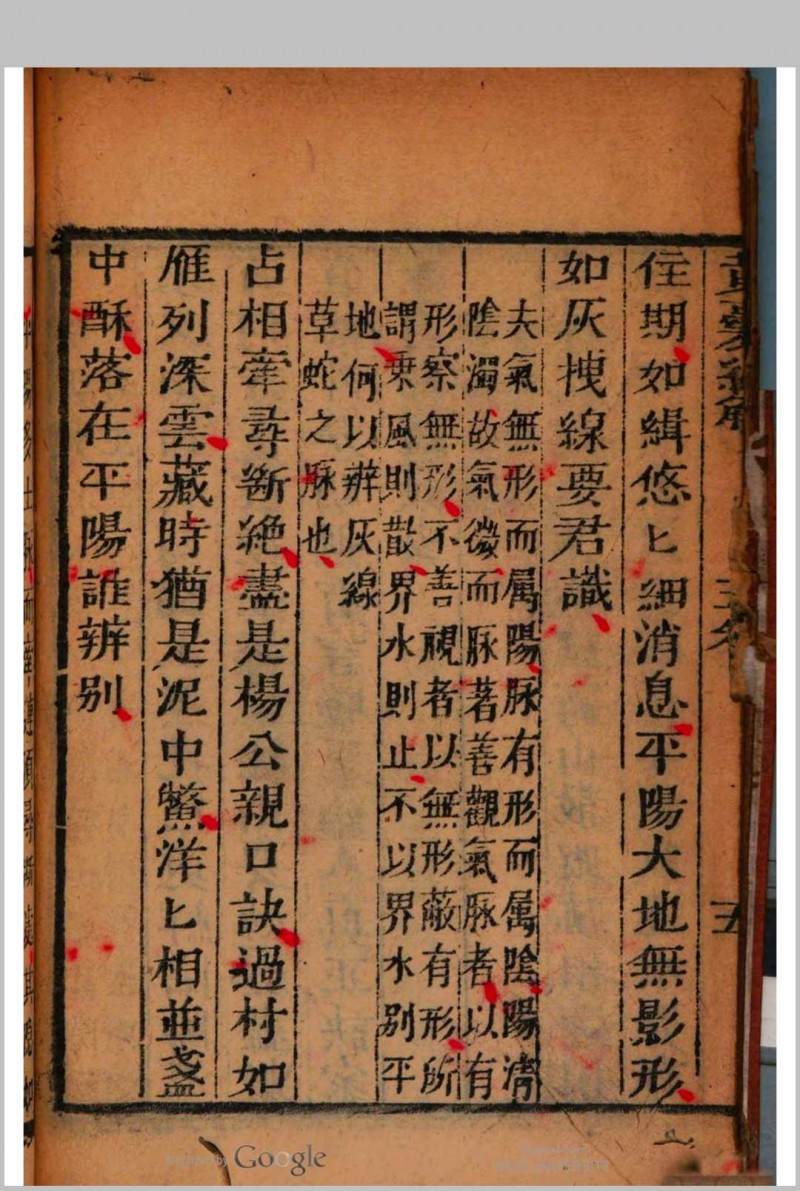 住期如緝悠匕細消息平陽大地無影形
如灰拽線要君識
夫氣無形而属陽脉有形而属陰陽清
陰濁故氣微而脉著善觀氣脉者以有
形察無形不善視者以無形蔽有形所
謂乗風則散界水則止不以界水别平
地何以辨灰線
草蛇之脉也
占相牽尋断絶盡是楊公親口訣過村如
雁列深雲藏時猶是泥中鱉洋匕相並盞
中酥落在平陽誰辨别
五
Google